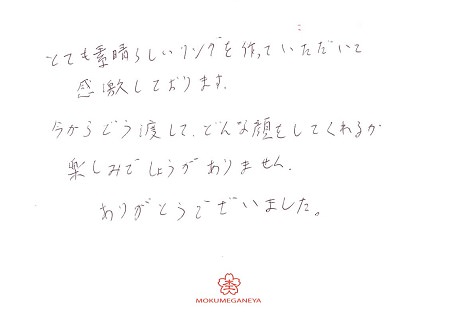 とても素晴らしいリングを作っていただいて
感激しております。
今からどう渡して、どんな顔をしてくれるか
楽しみでしょうがありません。
ありがとうございました。
MOKUMEGANEYA